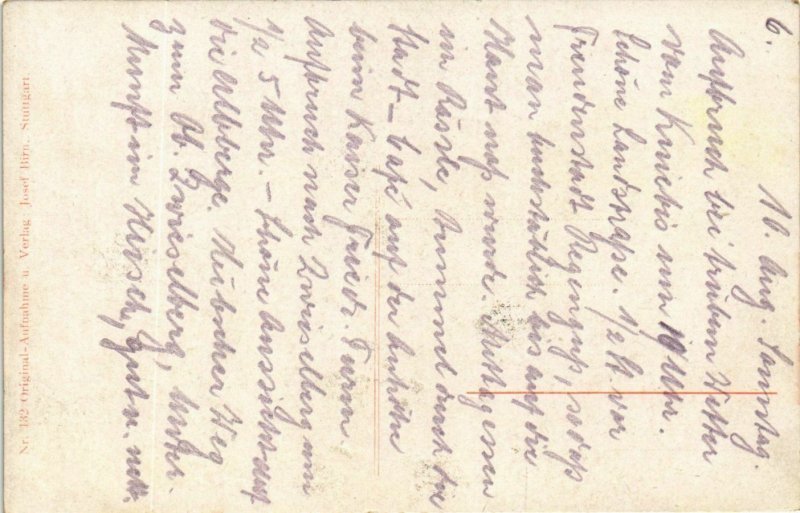 6.
16. Aug. Samstag.
Aufbruch bei trübem Wetter
vom Kniebis um 10 Uhr.
Schöne Landstraße. 1/2 St vor
Freudenstadt Regenguß, sodaß
man buchstäblich bis auf die
Haut naß wurde. Mittagessen
im Rössle, Bummel durch die
Stadt – Café auf der Anhöhe
beim Kaiser Friedr. Turm.
Aufbruch nach Zwieselberg um
1/2 5 Uhr. – Schöne Aussicht auf
die Albberge. Hübscher Weg
zum Ob. Zwieselberg, Unter-
kunft im Hirsch, gut u. nett.
Nr. 132 Original-Aufnahme u. Verlag Josef Birn, Stuttgart